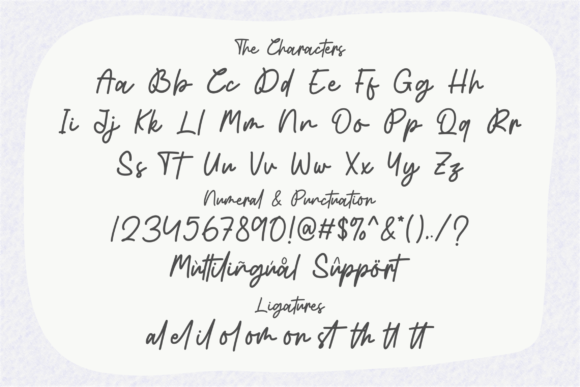 The Characters
Aa Bb Cc Dd Ee Ff Gg Hh
Ii Jj Kk Ll Mm Nn Oo Pp Qq Rr
Ss Tt Uu Vv Ww Xx Yy Zz
Numeral & Punctuation
1234567890!@#$%^&*()../?
Mùttilíñgúål Sûppört
Ligatures
al el il ol om on st th tl tt